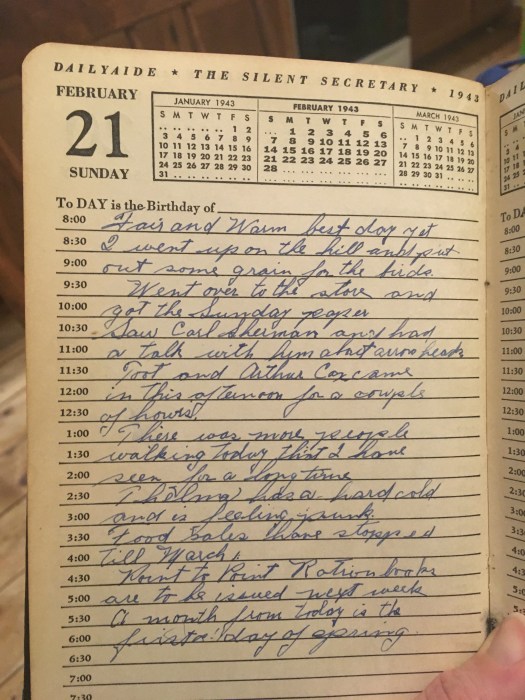 DAILYAIDE ★ THE SILENT SECRETARY ★ 1943
FEBRUARY
21
SUNDAY
JANUARY 1943
S M T W T F S
.. .. .. .. .. 1 2
3 4 5 6 7 8 9
10 11 12 13 14 15 16
17 18 19 20 21 22 23
24 25 26 27 28 29 30
31 .. .. .. .. .. ..
FEBRUARY 1943
S M T W T F S
.. 1 2 3 4 5 6
7 8 9 10 11 12 13
14 15 16 17 18 19 20
21 22 23 24 25 26 27
28 .. .. .. .. .. ..
MARCH 1943
S M T W T F S
.. 1 2 3 4 5 6
7 8 9 10 11 12 13
14 15 16 17 18 19 20
21 22 23 24 25 26 27
28 29 30 31 .. .. ..
To DAY is the Birthday of
8:00 Fair and Warm best day yet
8:30 I went up on the hill and put
9:00 out some grain for the birds.
9:30 Went over to the store and
10:00 got the Sunday paper
10:30 Saw Carl Sherman and had
11:00 a talk with him about arrow heads
11:30 Toot and Arthur Cox came
12:00 in this afternoon for a couple
12:30 of hours.
1:00 There was more people
1:30 walking today that I have
2:00 seen for a long time
2:30 Thelma has a hard cold
3:00 and is feeling punk.
3:30 Food Sales have stopped
4:00 till March 1
4:30 Point to Point Ration books
5:00 are to be issued next week
5:30 A month from today is the
6:00 first day of spring.
6:30
7:00
7:30
DAIL
To DA
8:00
8:30
9:00
9:30
10:00
10:30
11:00
11:30
12:00
12:30
1:00
1:30
2:00
2:30
3:00
3:30